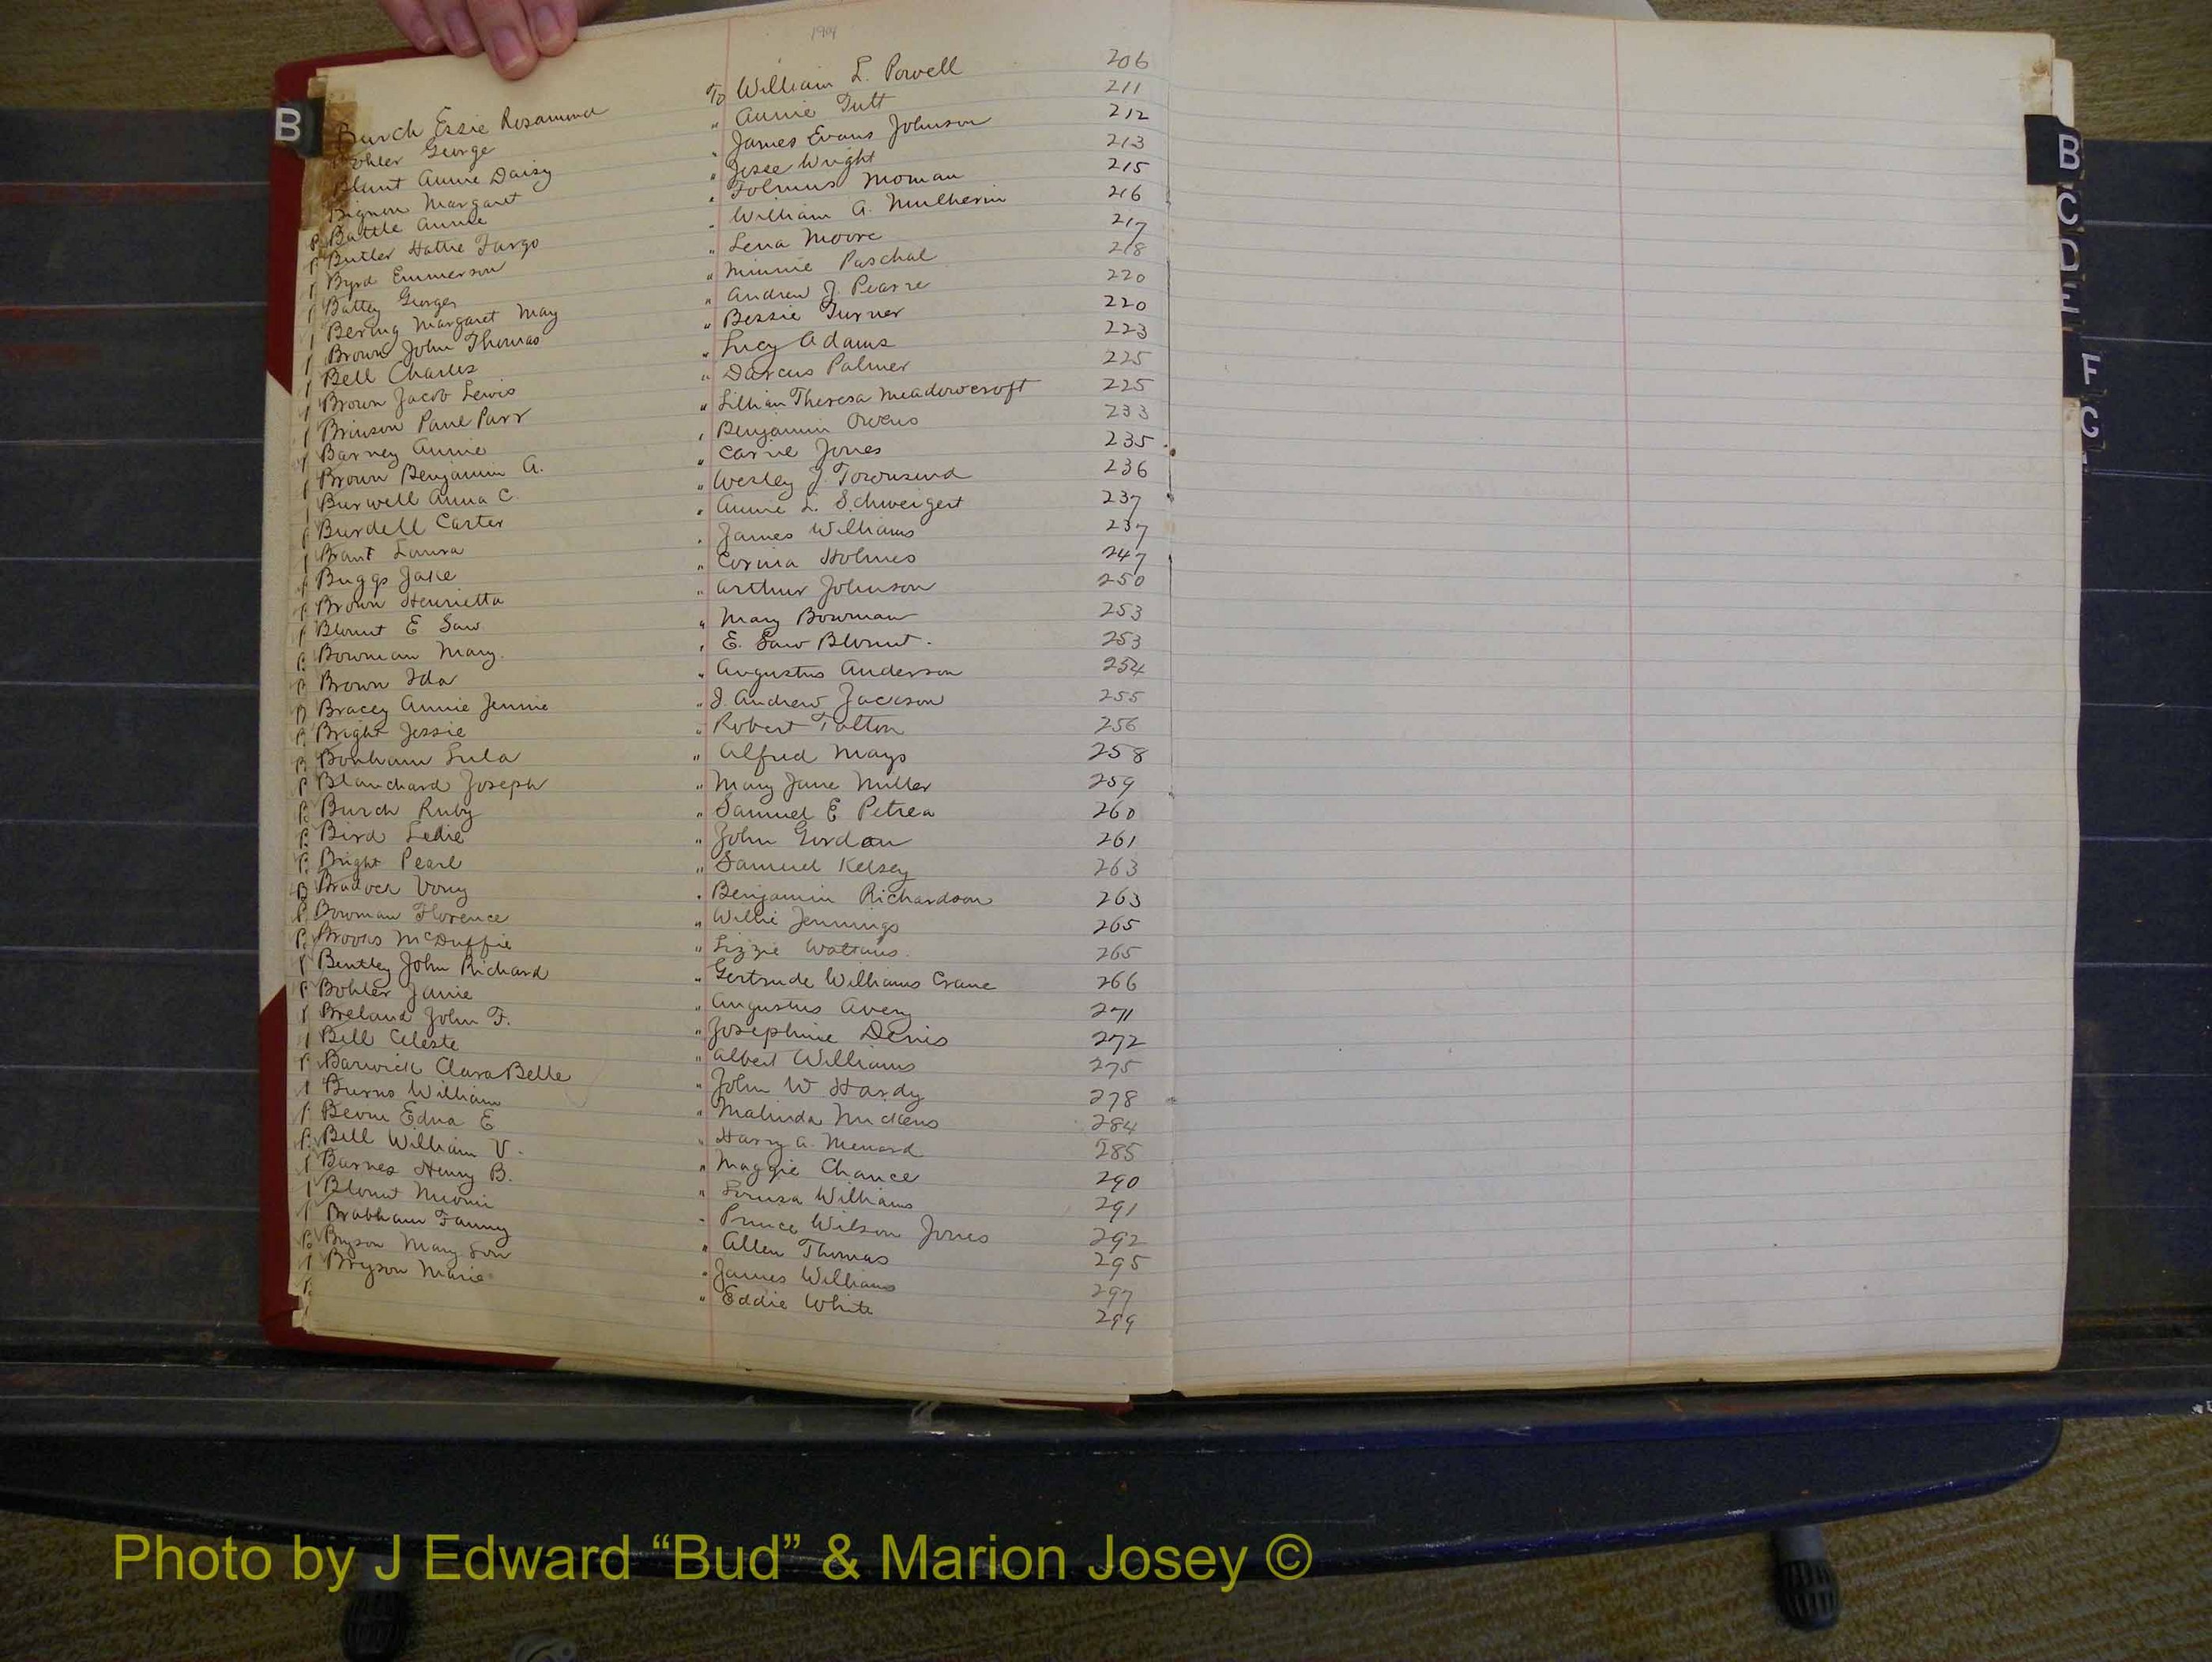 1909
B
Burch Essie Rosamond To William L. Powell 206
Bohler George " Annie Tutt 211
Blunt Annie Daisy " James Evans Johnson 212
Bignon Margaret " Jesse Wright 213
Battle Annie " Folmus Moman 215
Butler Hattie Fargo " William A. Mulherin 216
Byrd Emmerson " Lena Moore 217
Battey George " Minnie Paschal 218
Bering Margaret May " Andrew J. Pearre 220
Brown John Thomas " Bessie Turner 220
Bell Charles " Lucy Adams 223
Brown Jacob Lewis " Darcus Palmer 225
Brinson Paul Parr " Lillian Theresa Meadowcroft 225
Barney Annie " Benjamin Owens 233
Brown Benjamin A. " Carrie Jones 235
Burwell Anna C. " Wesley J. Townsend 236
Burdell Carter " Annie L. Schweigert 237
Brant Loura " James Williams 237
Buggs Jake " Corina Holmes 247
Brown Henrietta " Arthur Johnson 250
Blount E Saw " Mary Bowman 253
Bowman Mary. " E. Saw Blount. 253
Brown Ida " Augustus Anderson 254
Bracey Annie Jennie " J. Andrew Jackson 255
Bright Jessie " Robert Talton 256
Bonham Lula " Alfred Mays 258
Blanchard Joseph " Mary Jane Miller 259
Burch Ruby " Samuel E Petrea 260
Bird Ledie " John Gordon 261
Bright Pearl " Samuel Kelsey 263
Bradock Vony " Benjamin Richardson 263
Bowman Florence " Willie Jennings 265
Brooks McDuffie " Lizzie 265
Bentley John Richard " Gertrude Williams Crane 266
Bohler Janie " Augustus Avery 271
Breland John F. " Josephine Denis 272
Bell Celeste " Albert Williams 275
Barwick Clara Belle " John W Hardy 278
Burns William " Malinda Mickens 284
Edna E " Harry A. Menard 285
Bell William V. " Maggie Chance 290
Barnes Henry B. " Louisa Williams 291
Blount Neomi " Prince Wilson Jones 292
Brabham Fanny " Allen Thomas 295
Bryson Mary Lou " James Williams 297
Bryson Marie " Eddie White 299
B
C
D
E
F
G
Photo by J Edward “Bud” & Marion Josey ©